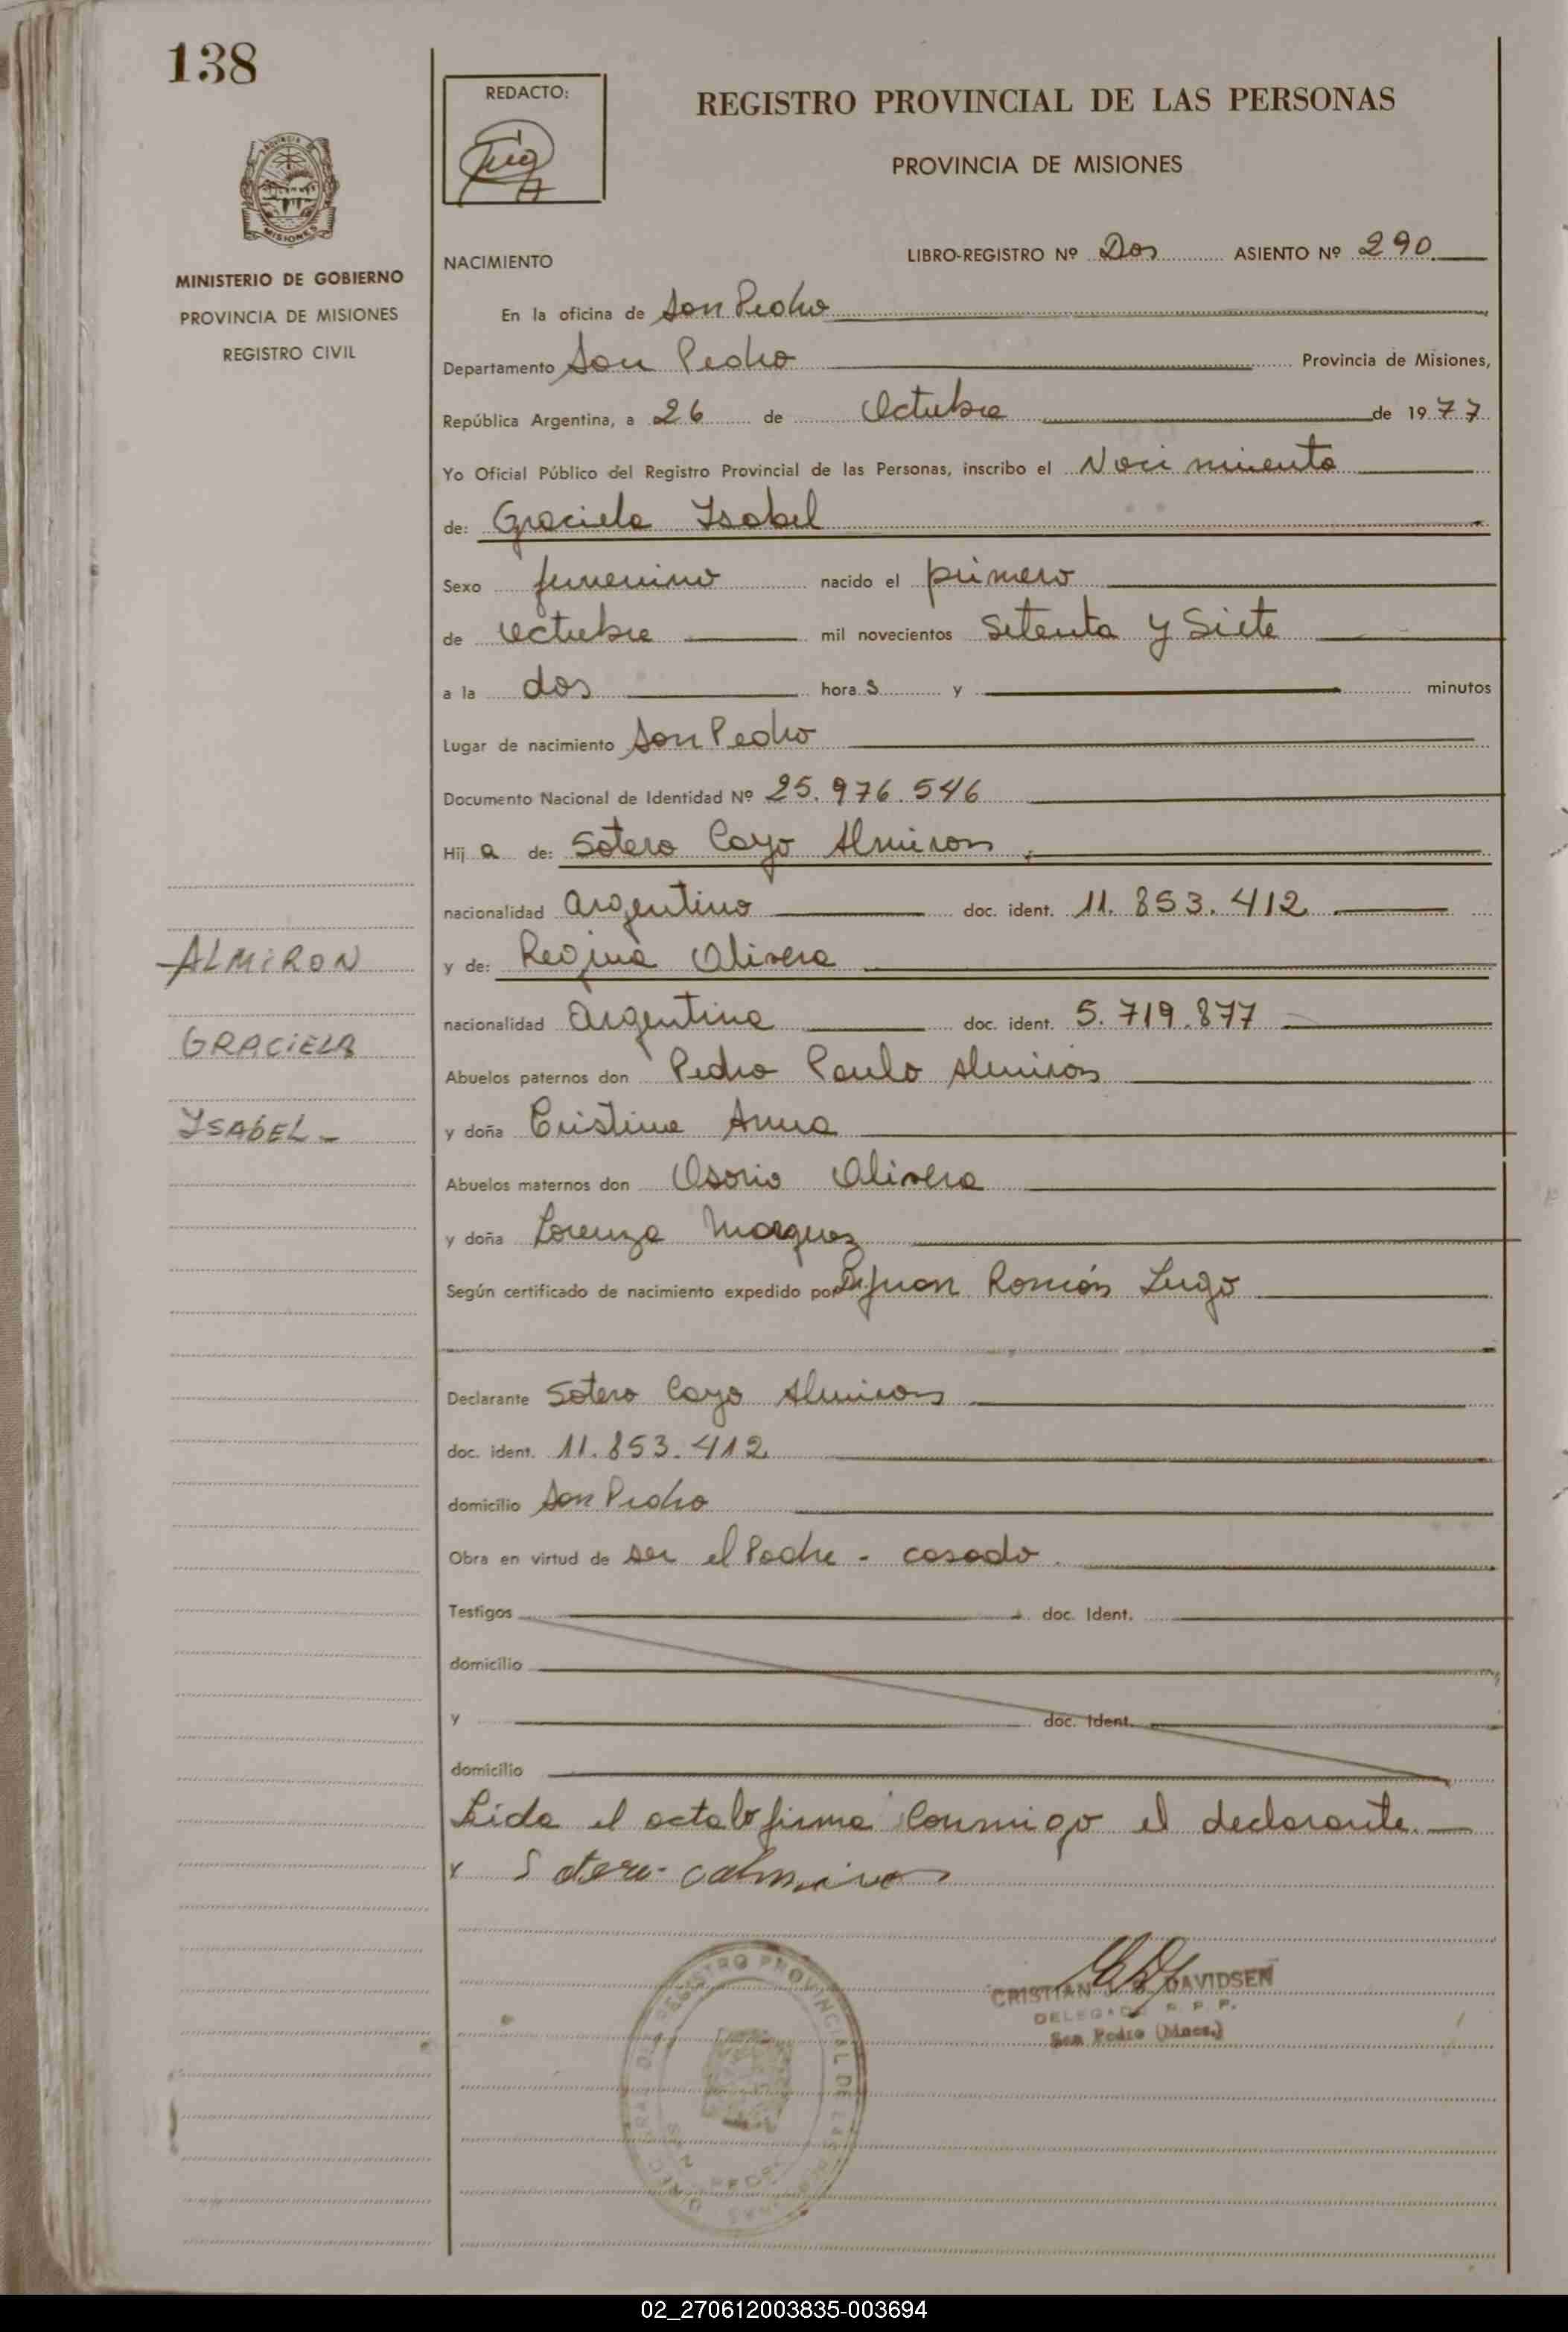 138
REDACTO:
REGISTRO PROVINCIAL DE LAS PERSONAS
PROVINCIA DE MISIONES
MISIONES
MINISTERIO DE GOBIERNO
PROVINCIA DE MISIONES
REGISTRO CIVIL
NACIMIENTO
LIBRO-REGISTRO Nº Dos ASIENTO Nº 290
En la oficina de San Pedro
Departamento San Pedro Provincia de Misiones,
República Argentina, a 26 de Octubre de 1977
Yo Oficial Público del Registro Provincial de las Personas, inscribo el Nacimiento
de: Graciela Isabel
Sexo femenino nacido el primero
de Octubre mil novecientos Setenta y Siete
a la dos hora s y minutos
Lugar de nacimiento San Pedro
Documento Nacional de Identidad Nº 25.976.546
Hij a de: Sotero Cayo Almiron
nacionalidad Argentino doc. ident. 11.853.412
ALMIRON
y de: Regina Olivera
nacionalidad Argentina doc. ident. 5.719.877
GRACIELA
Abuelos paternos don Pedro Paulo Almiron
ISABEL -
y doña Cristina Anna
Abuelos maternos don Osorio Olivera
y doña Lorenza Marquez
Según certificado de nacimiento expedido por Dr Juan Román Lugo
Declarante Sotero Cayo Almiron
doc. ident. 11.853.412
domicilio San Pedro
Obra en virtud de ser el Padre - casado.
Testigos doc. Ident.
domicilio
y doc. Ident.
domicilio
Leida el acta la firma conmigo el declarante.
x Sotero
CRISTIAN DAVIDSEN
DELEGADO R. P. P.
San Pedro (Mnes.)
REGISTRO PROVINCIAL DE LAS
02_270612003835-003694